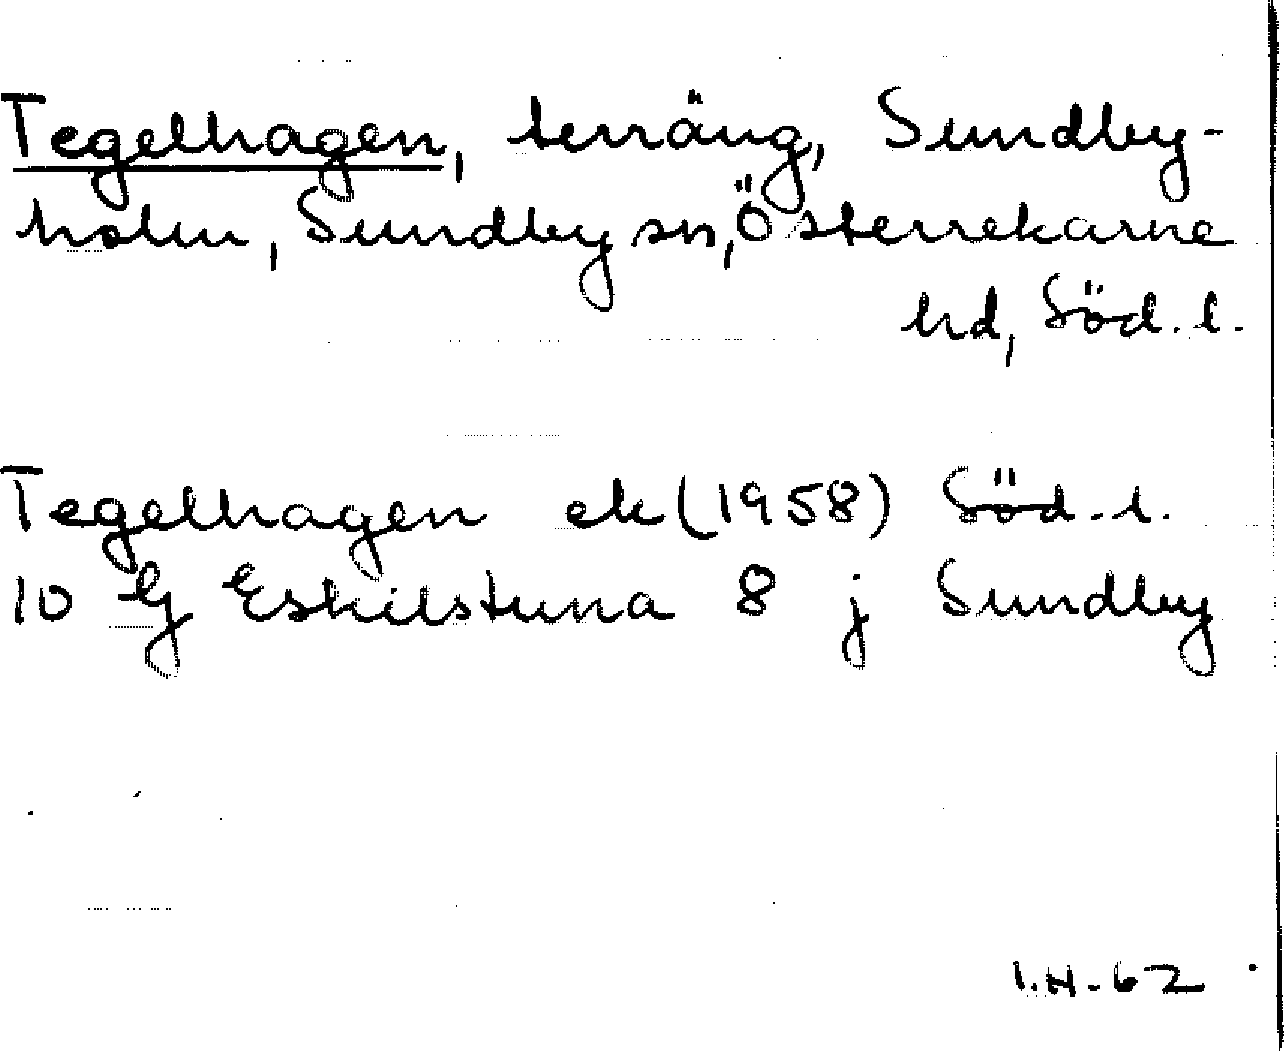 Tegelhagen, terräng, Sundby-
holm, Sundby sn, Österrekarne
hd, Söd. l.
Tegelhagen ek (1958) Söd. l.
10 G Eskilstuna 8 j Sundby
I.H-62